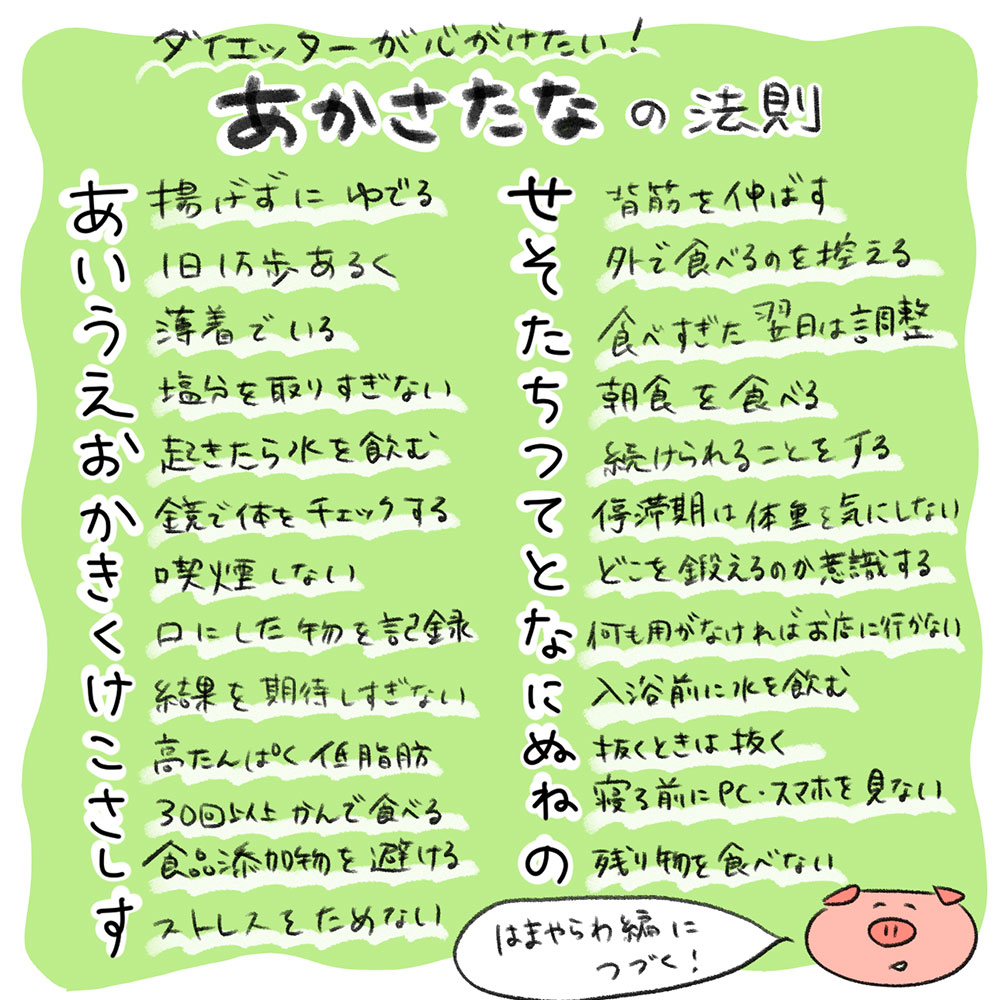 ダイエッターが心がけたい!
あかさたなの法則
あ 揚げずに ゆでる
い 1日1万歩あるく
う 薄着でいる
え 塩分を取りすぎない
お 起きたら水を飲む
か 鏡で体をチェックする
き 喫煙しない
く 口にした物を記録
け 結果を期待しすぎない
こ 高たんぱく低脂肪
さ 30回以上かんで食べる
し 食品添加物を避ける
す ストレスをためない
せ 背筋を伸ばす
そ 外で食べるのを控える
た 食べすぎた翌日は調整
ち 朝食を食べる
つ 続けられることをする
て 停滞期は体重を気にしない
と どこを鍛えるのか意識する
な 何も用がなければお店に行かない
に 入浴前に水を飲む
ぬ 抜くときは抜く
ね 寝る前にPC・スマホを見ない
の 残り物を食べない
はまやらわ編に
つづく!